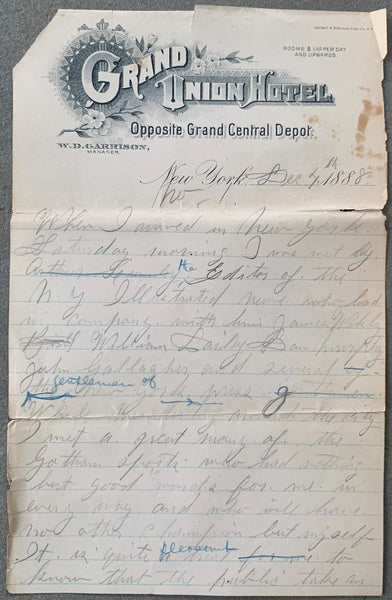 ROOMS $1.00 PER DAY
AND UPWARDS.
GRAND
UNION HOTEL
Opposite Grand Central Depot.
W. D. GARRISON,
MANAGER.
New York, Dec 4th 1888
When I arrived in New York
Saturday morning I was met by
the Editor of the
N. Y. Illustrated News who had
in company with him James Wakely
William Daily
John Gallagher and several
gentlemen of
the New York press
While driving around the city
I met a great many of the
Gotham sports who had nothing
but good words for me in
every way and who will have
no other champion but myself
It is quite pleasant to
know that the public take an